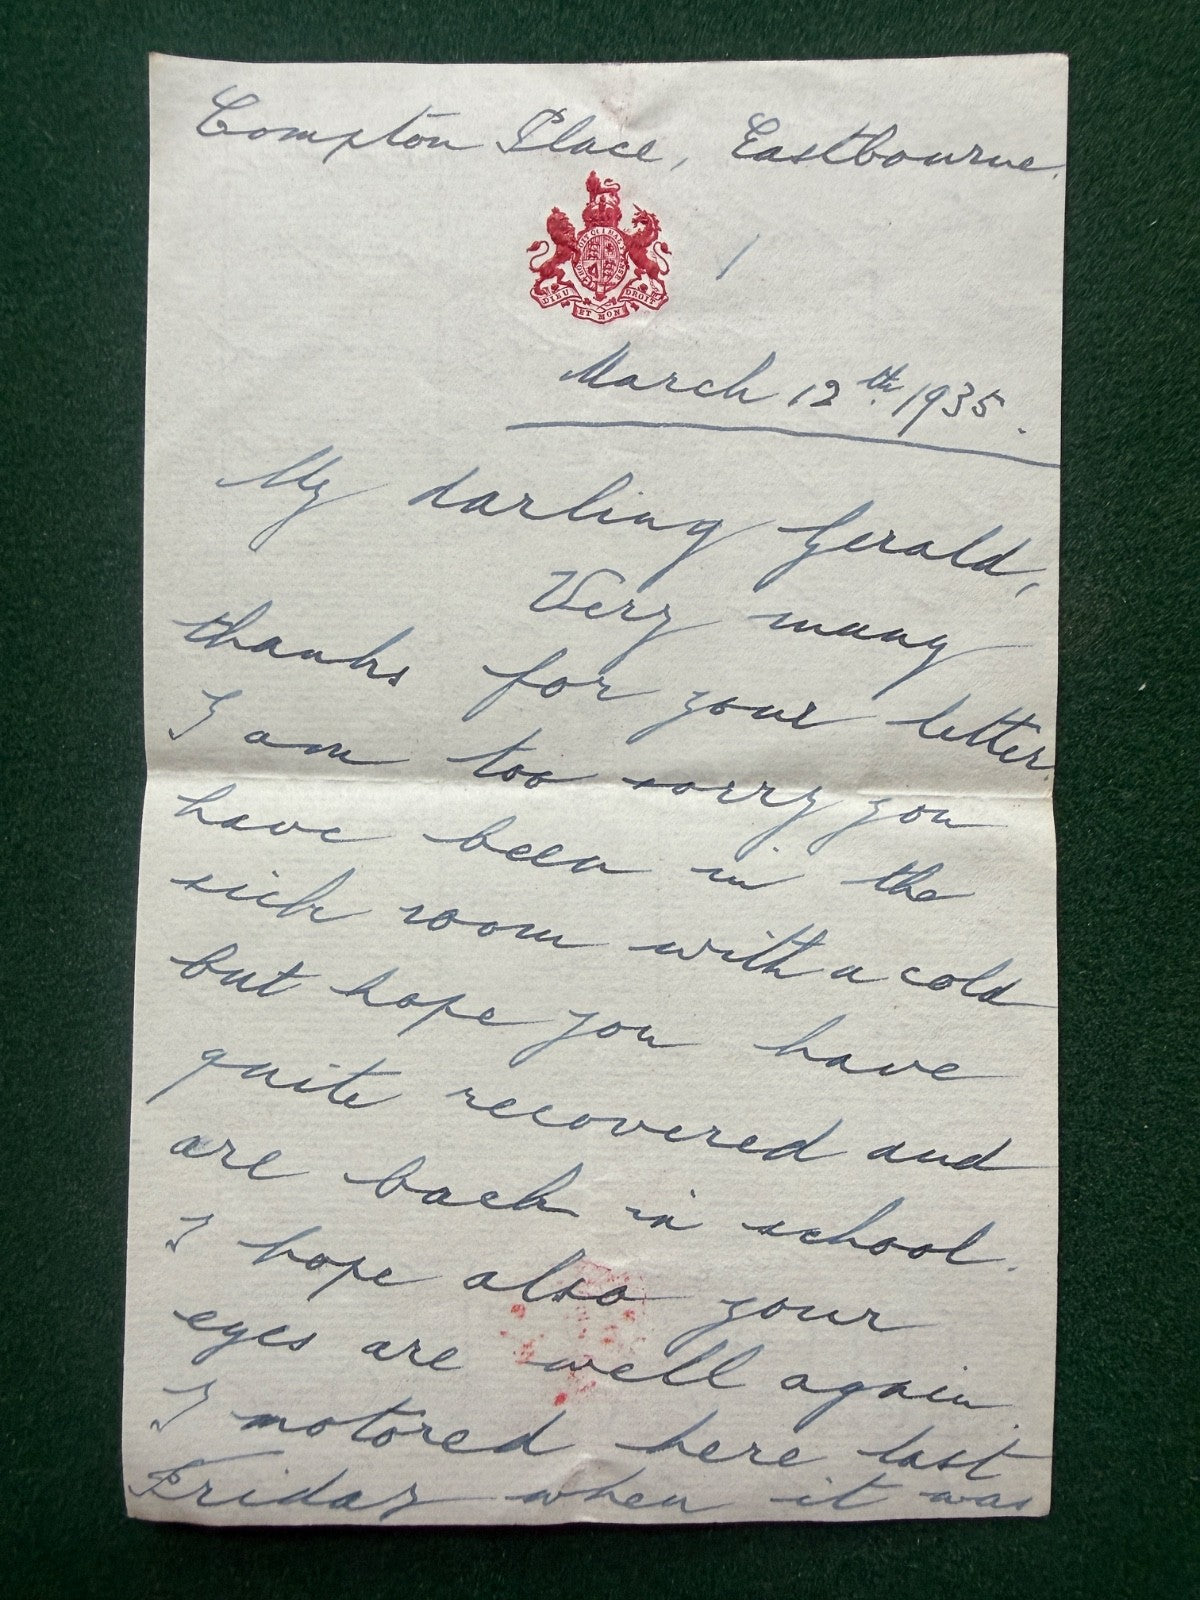 Compton Place, Eastbourne.
DIEU ET MON DROIT
March 12th. 1935.
My darling Gerald,
Very many
thanks for your letter.
I am too sorry you
have been in the
sick room with a cold
but hope you have
quite recovered and
are back in school.
I hope also your
eyes are well again.
I motored here last
Friday when it was